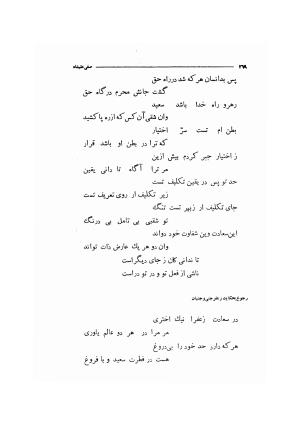 ۲۶۹ صفی‌علیشاه
پس بدانسان هر که شد در راه حق
گشت جانش محرم درگاه حق
رهرو راه خدا باشد سعید
وان شقی آن کس که از ره پا کشید
بطن ام تست سرّ اختیار
که ترا در بطن او باشد قرار
ز اختیار جبر کردم پیش ازین
مر ترا آگاه تا دانی یقین
حد تو پس در یقین تکلیف تست
زیر تکلیف ار روی تعریف تست
جای تکلیف ار زبیر تست تنگ
تو شقیی بی تامل بی درنگ
این سعادت وین شقاوت خود دواند
وان دو هر یک عارض ذات تواند
تا ندانی کان ز جای دیگر است
ناشی از فعل تو و در تو در است
رجوع بحکایت زعفر جنی و جنیان
در سعادت زعفرا نیک اختری
مر مرا در هر دو عالم یاوری
هر که دارد حد خود را بی‌دروغ
هست در فطرت سعید و با فروغ